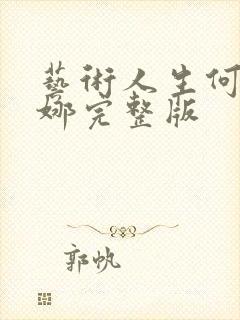 藝術人生何
娜完整版
郭帆